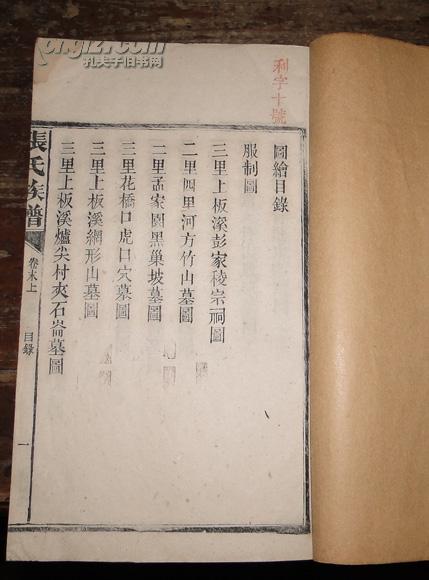 kongfz.com
孔夫子旧书网
利字十號
圖繪目錄
服制圖
三里上板溪彭家稜宗祠圖
二里四里河方竹山墓圖
二里孟家園黑巢坡墓圖
三里花橋口虎口穴墓圖
三里上板溪網形山墓圖
三里上板溪爐尖村夾石崙墓圖
張氏族譜
卷末上
目錄
一